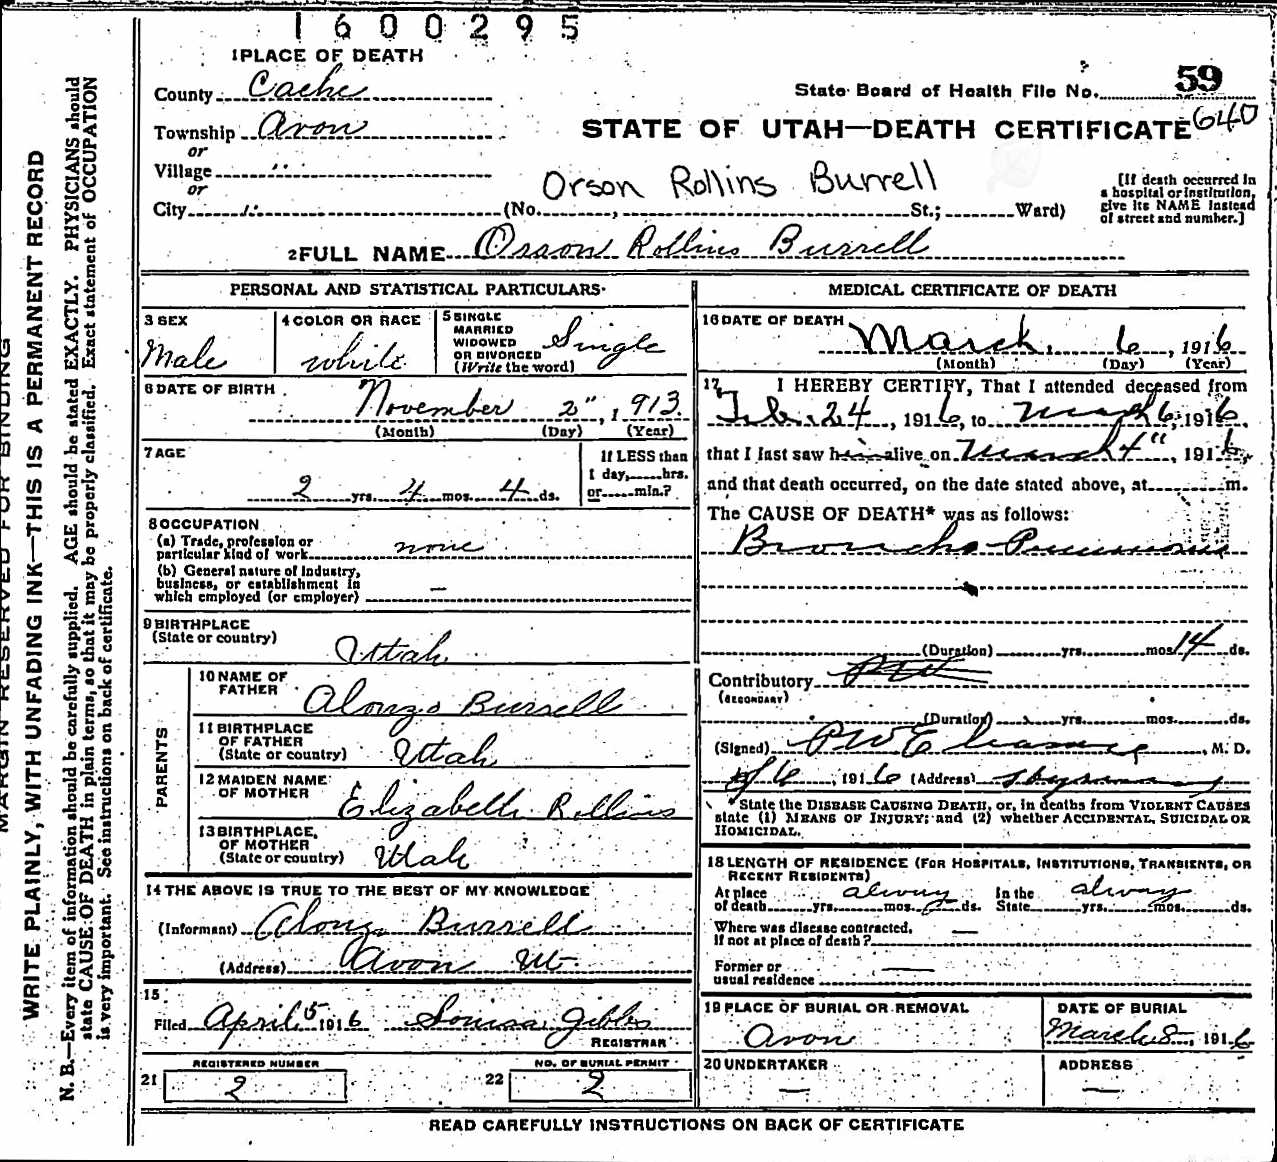 1600295
1 PLACE OF DEATH
County Cache
State Board of Health File No. 59
640
Township Avon
STATE OF UTAH—DEATH CERTIFICATE
or
Village "
or
Orson Rollins Burrell
[If death occurred in a hospital or institution, give its NAME instead of street and number.]
City " (No. , St.; Ward)
2 FULL NAME Orson Rollins Burrell
PERSONAL AND STATISTICAL PARTICULARS
3 SEX
Male
4 COLOR OR RACE
White
5 SINGLE
MARRIED
WIDOWED
OR DIVORCED
(Write the word)
Single
6 DATE OF BIRTH
November 2", 1913
(Month) (Day) (Year)
7 AGE
2 yrs. 4 mos. 4 ds.
If LESS than
1 day, hrs.
or min.?
8 OCCUPATION
(a) Trade, profession or
particular kind of work none
(b) General nature of industry,
business, or establishment in
which employed (or employer) —
9 BIRTHPLACE
(State or country)
Utah
PARENTS
10 NAME OF
FATHER
Alonzo Burrell
11 BIRTHPLACE
OF FATHER
(State or country)
Utah
12 MAIDEN NAME
OF MOTHER
Elizabeth Rollins
13 BIRTHPLACE
OF MOTHER
(State or country)
Utah
14 THE ABOVE IS TRUE TO THE BEST OF MY KNOWLEDGE
(Informant) Alonzo Burrell
(Address) Avon Ut
15
Filed April 5 1916 Louisa Gibbs
REGISTRAR
REGISTERED NUMBER
21 2
NO. OF BURIAL PERMIT
22 2
MEDICAL CERTIFICATE OF DEATH
16 DATE OF DEATH
March 6, 1916
(Month) (Day) (Year)
17 I HEREBY CERTIFY, That I attended deceased from
Feb. 24, 1916, to March 6, 1916
that I last saw him alive on March 4", 1916,
and that death occurred, on the date stated above, at m.
The CAUSE OF DEATH* was as follows:
Broncho Pneumonia
(Duration) yrs. mos. 14 ds.
Contributory
(SECONDARY)
(Duration) yrs. mos. ds.
(Signed) , M. D.
1916 (Address)
*State the DISEASE CAUSING DEATH, or, in deaths from VIOLENT CAUSES
state (1) MEANS OF INJURY: and (2) whether ACCIDENTAL, SUICIDAL OR
HOMICIDAL.
18 LENGTH OF RESIDENCE (FOR HOSPITALS, INSTITUTIONS, TRANSIENTS, OR
RECENT RESIDENTS)
At place always In the always
of death yrs. mos. ds. State yrs. mos. ds.
Where was disease contracted, —
If not at place of death?
Former or
usual residence —
19 PLACE OF BURIAL OR REMOVAL
Avon
DATE OF BURIAL
March 8, 1916
20 UNDERTAKER
—
ADDRESS
—
READ CAREFULLY INSTRUCTIONS ON BACK OF CERTIFICATE
MARGIN RESERVED FOR BINDING
WRITE PLAINLY, WITH UNFADING INK—THIS IS A PERMANENT RECORD
N. B.—Every item of information should be carefully supplied. AGE should be stated EXACTLY. PHYSICIANS should
state CAUSE OF DEATH in plain terms, so that it may be properly classified. Exact statement of OCCUPATION
is very important. See instructions on back of certificate.